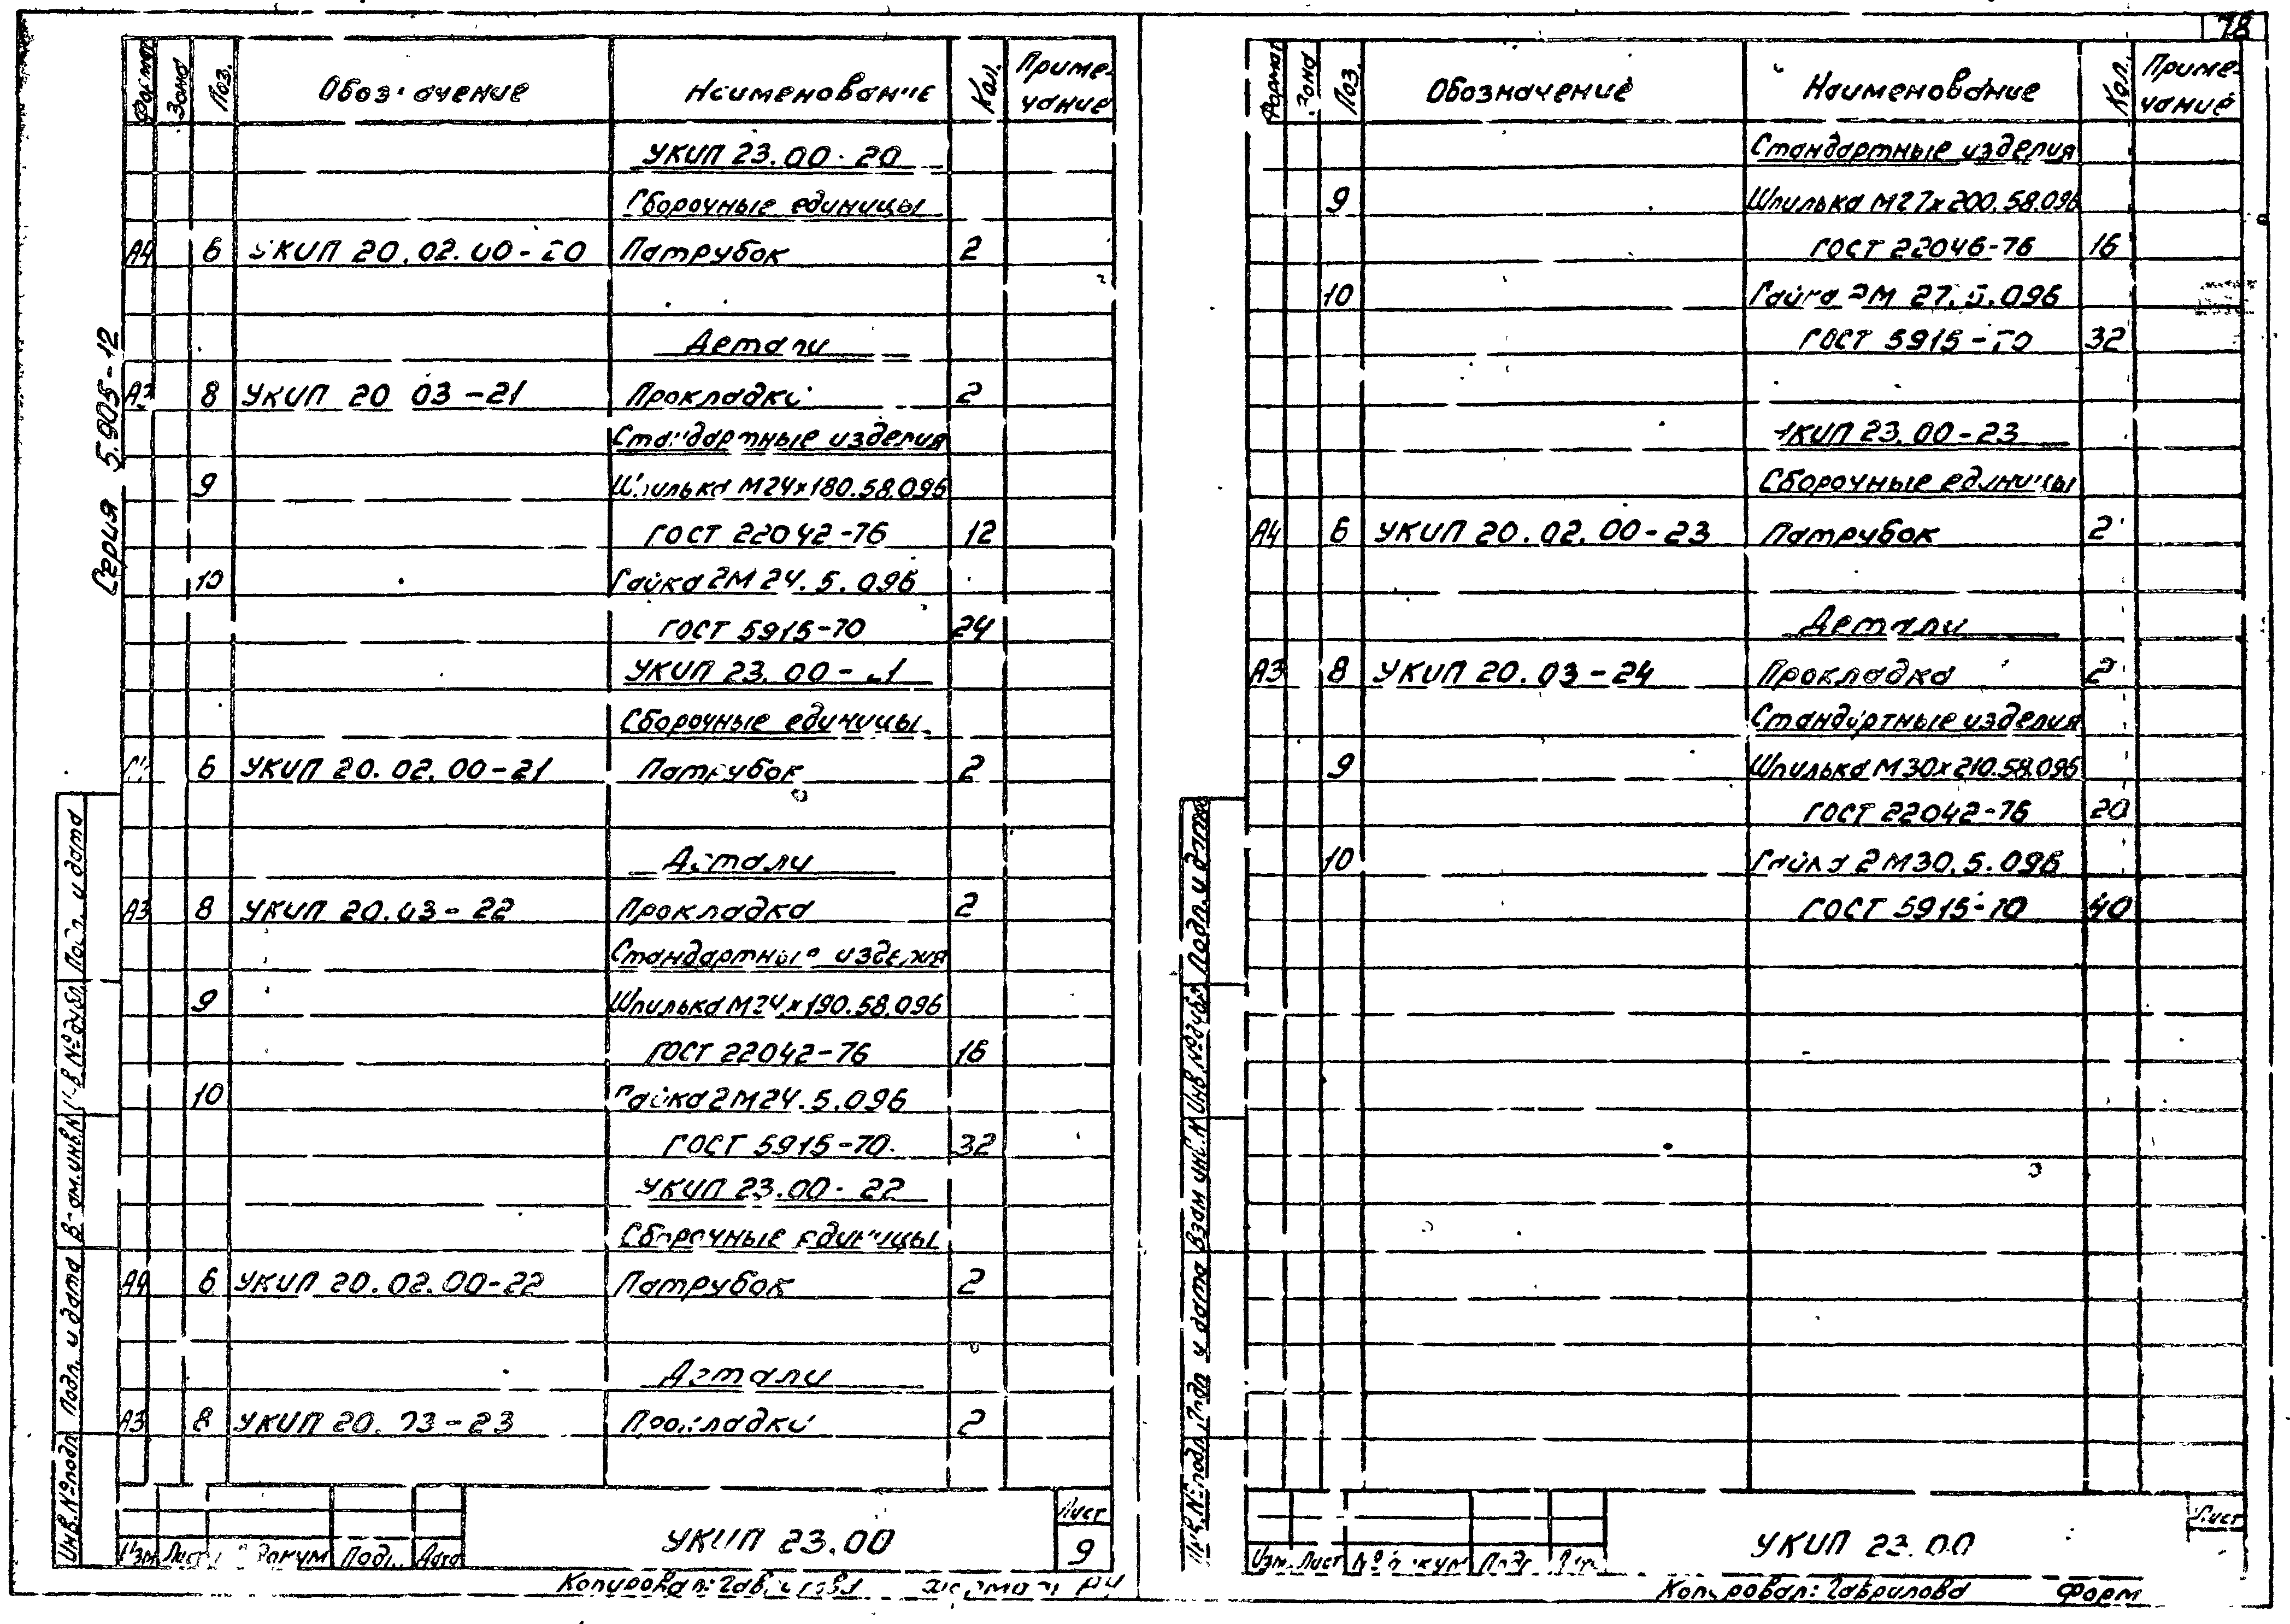 78
Серия 5.905-12
Формат Зона Поз. Обозначение Наименование Кол. Приме-
чание
УКИП 23.00-20
Сборочные единицы
А4 6 УКИП 20.02.00-20 Патрубок 2
Детали
А3 8 УКИП 20 03-21 Прокладка 2
Стандартные изделия
9 Шпилька М24х180.58.096
ГОСТ 22042-76 12
10 Гайка 2М24.5.096
ГОСТ 5915-70 24
УКИП 23.00-21
Сборочные единицы
6 УКИП 20.02.00-21 Патрубок 2
Детали
А3 8 УКИП 20.03-22 Прокладка 2
Стандартные изделия
9 Шпилька М24х190.58.096
ГОСТ 22042-76 16
10 Гайка 2М24.5.096
ГОСТ 5915-70 32
УКИП 23.00-22
Сборочные единицы
А4 6 УКИП 20.02.00-22 Патрубок 2
Детали
А3 8 УКИП 20.03-23 Прокладка 2
Инв.№подл. Подл. и дата Взам.инв.№ Инв №дубл. Подл. и дата
Изм Лист докум Подп. Дата
УКИП 23.00
Лист
9
Копировал: Гаврилова Формат А4
Формат Зона Поз. Обозначение Наименование Кол. Приме-
чание
Стандартные изделия
9 Шпилька М27х200.58.096
ГОСТ 22046-76 16
10 Гайка 2М 27.5.096
ГОСТ 5915-70 32
УКИП 23.00-23
Сборочные единицы
А4 6 УКИП 20.02.00-23 Патрубок 2
Детали
А3 8 УКИП 20.03-24 Прокладка 2
Стандартные изделия
9 Шпилька М30х210.58.096
ГОСТ 22042-76 20
10 Гайка 2М30.5.096
ГОСТ 5915-70 40
Инв.№подл. Подп и дата Взам инв.№ Инв.№дубл. Подп. и дата
Изм. Лист № докум Подп Дата
УКИП 23.00
Лист
Копировал: Гаврилова Форм